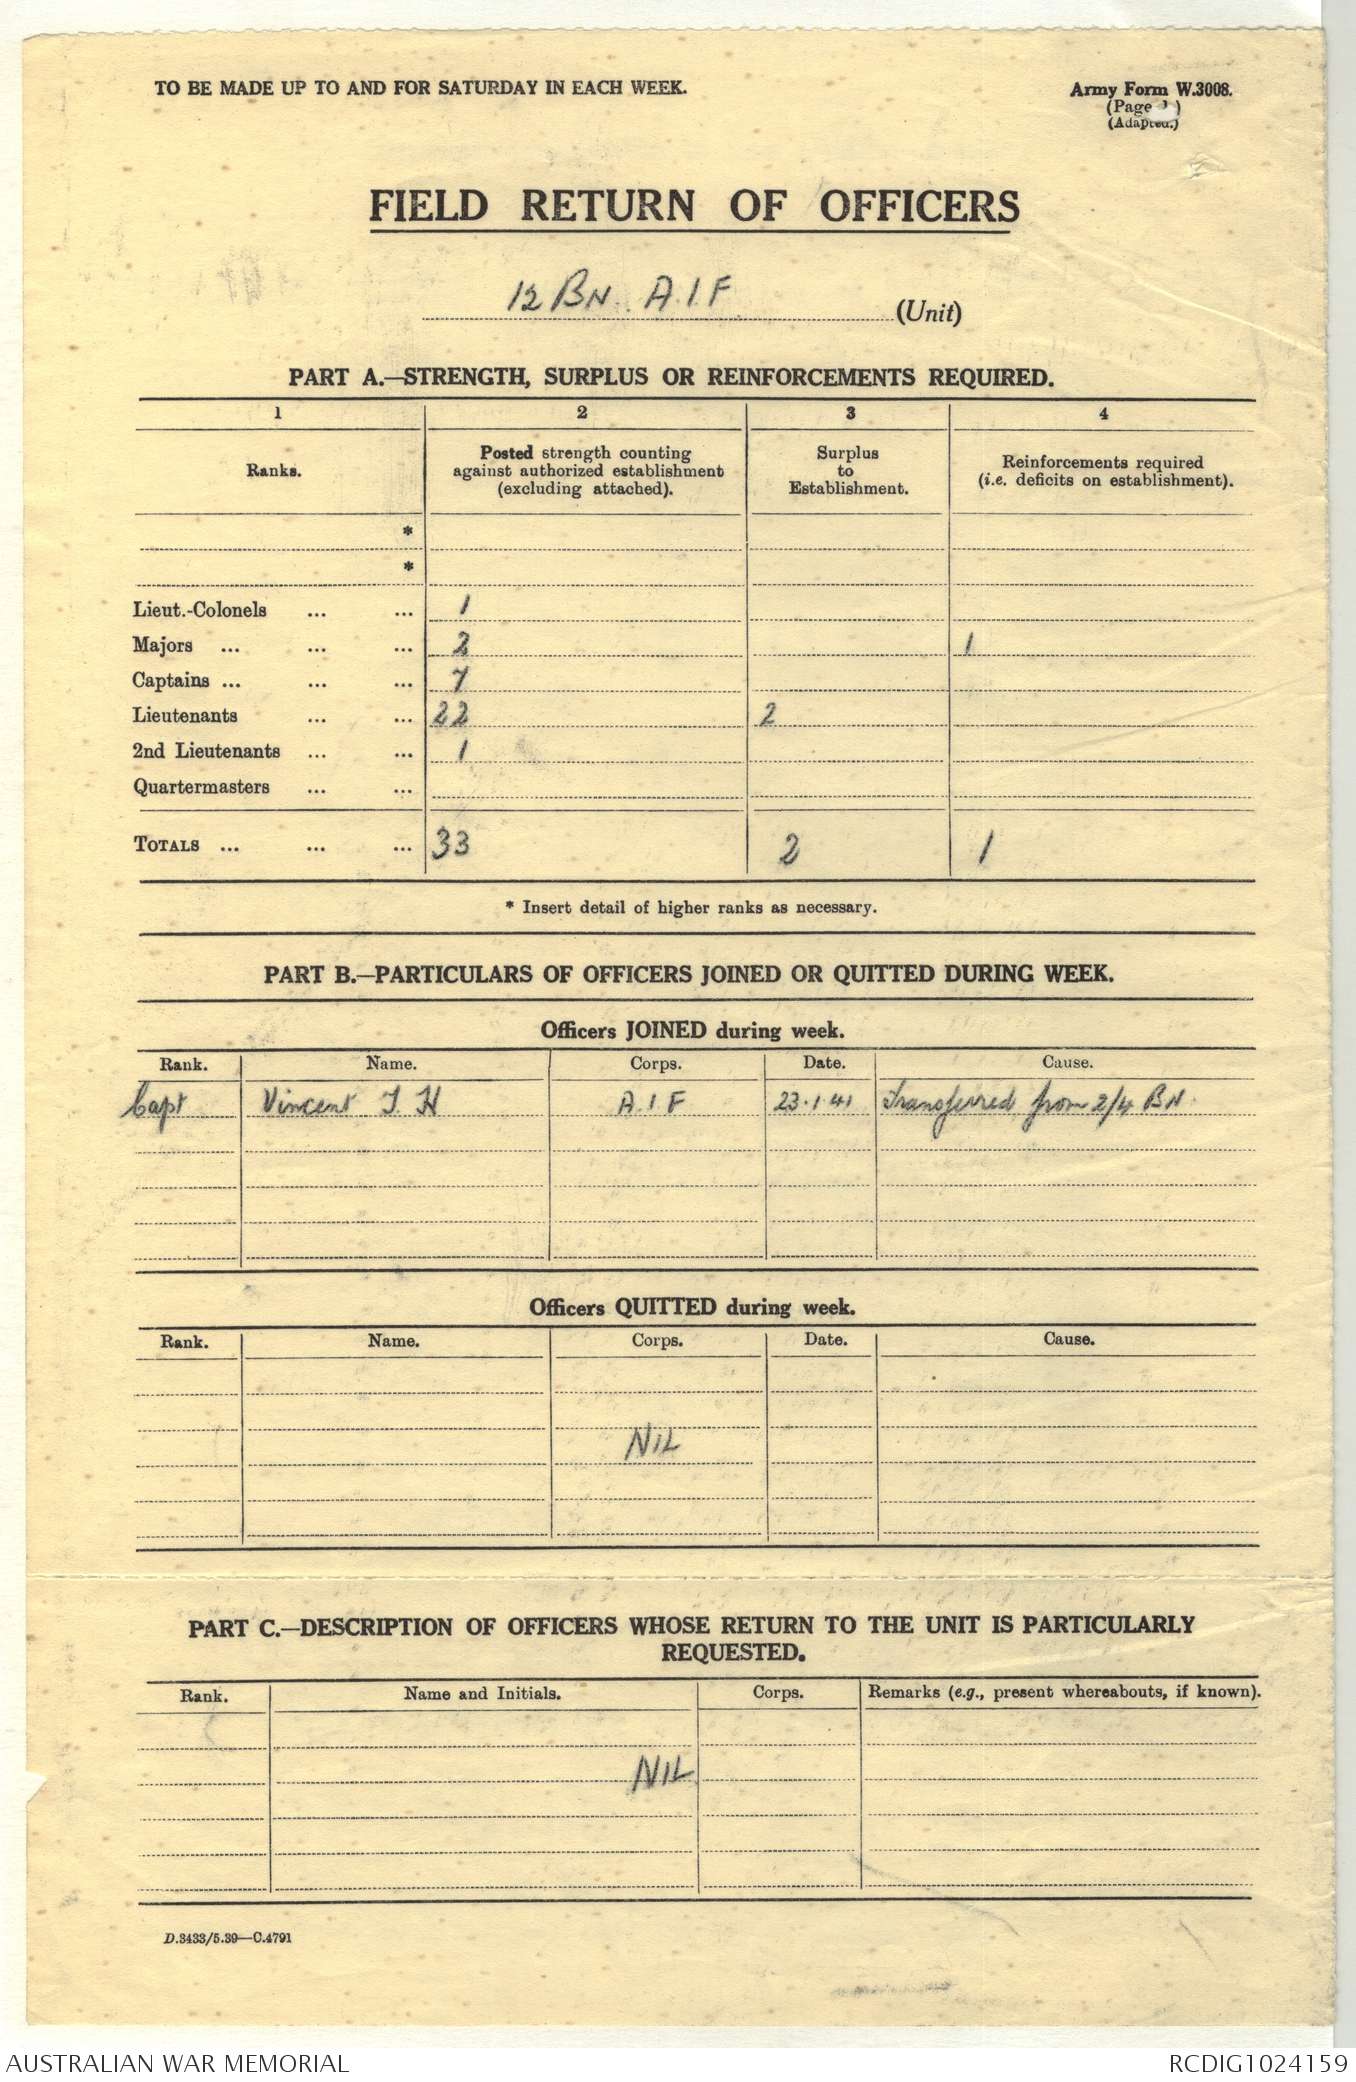 TO BE MADE UP TO AND FOR SATURDAY IN EACH WEEK.
Army Form W.3008.
(Page 1)
(Adapted.)
FIELD RETURN OF OFFICERS
12 BN. A.I.F. (Unit)
PART A.—STRENGTH, SURPLUS OR REINFORCEMENTS REQUIRED.
1 2 3 4
Ranks. Posted strength counting against authorized establishment (excluding attached). Surplus to Establishment. Reinforcements required (i.e. deficits on establishment).
*
*
Lieut.-Colonels ... ... 1
Majors ... ... ... 2 1
Captains ... ... ... 7
Lieutenants ... ... 22 2
2nd Lieutenants ... ... 1
Quartermasters ... ...
TOTALS ... ... ... 33 2 1
* Insert detail of higher ranks as necessary.
PART B.—PARTICULARS OF OFFICERS JOINED OR QUITTED DURING WEEK.
Officers JOINED during week.
Rank. Name. Corps. Date. Cause.
Capt Vincent T. H A.I F 23.1.41 Transferred from 2/4 BN.
Officers QUITTED during week.
Rank. Name. Corps. Date. Cause.
NIL
PART C.—DESCRIPTION OF OFFICERS WHOSE RETURN TO THE UNIT IS PARTICULARLY
REQUESTED.
Rank. Name and Initials. Corps. Remarks (e.g., present whereabouts, if known).
NIL
D.3433/5.39—C.4791
AUSTRALIAN WAR MEMORIAL
RCDIG1024159